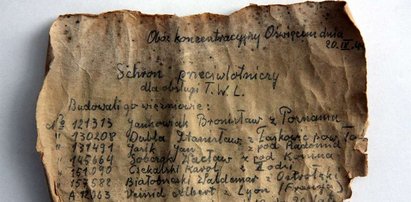 Obóz koncentracyjny Oświęcim dnia
20.IX.44
Schron przeciwlotniczy
dla obsługi T.W.L.
Budowali go więźniowie:
No 121313 Jankowiak Bronisław z Poznania
" 130208 Dubla Stanisław z Łaskowic pow. Tar
" 131491 Jasik Jan z pod Radomia
" 145664 Sobczak Wacław z pod Konina
" 151090 Czekalski Karol z Łodzi
" 157582 Białobrzeski Waldemar z Ostrołęki
A 12063 Veissid Albert z Lyon (Francja)